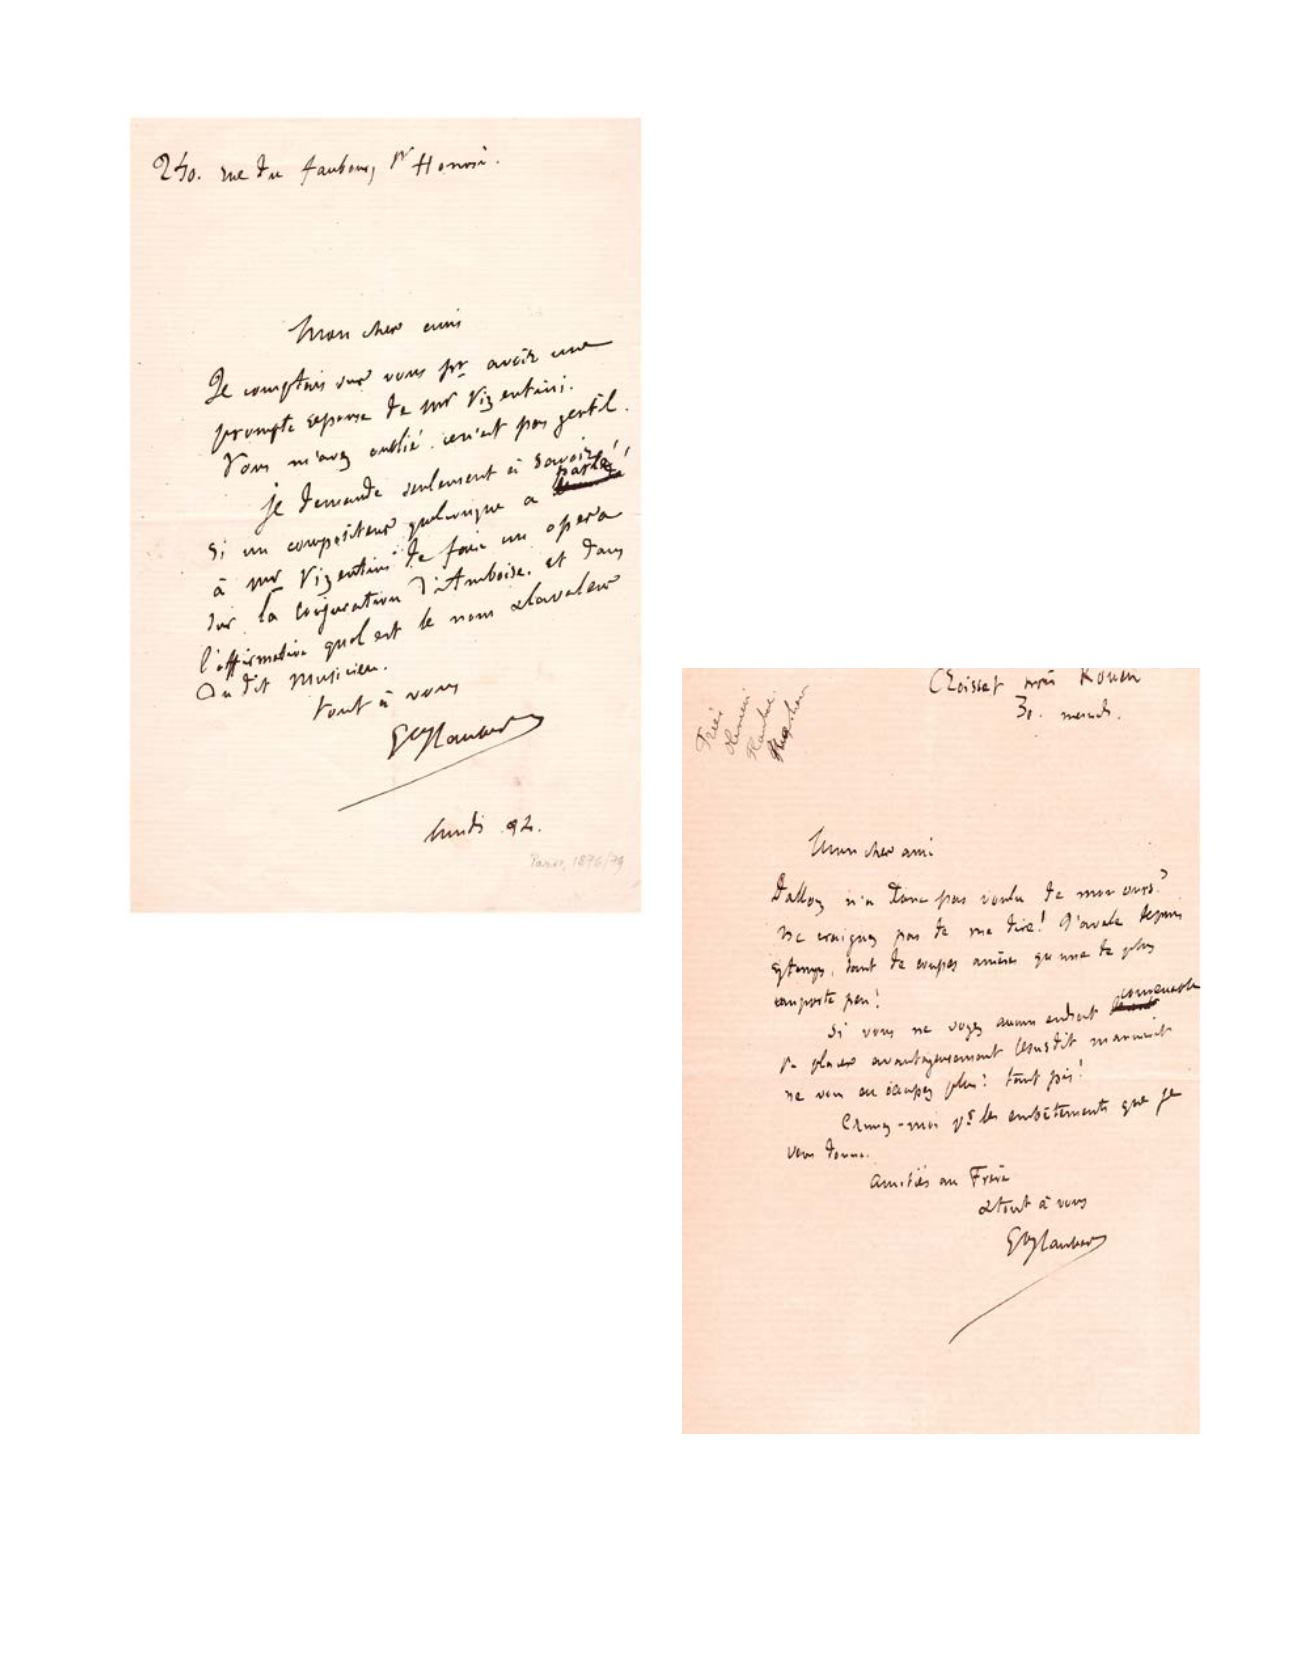 240. rue du faubourg St Honoré.
Mon cher ami
Je comptais sur vous pr avoir une
prompte reponse de mr Vizentini.
Vous m'avez oublié. ce n'est pas gentil.
je demande seulement à savoir
si un compositeur quelconque a parlé
à mr Vizentini de faire un opera
sur la conjuration d'Amboise. et dans
l'affirmative quel est le nom & la valeur
Du dit Musicien.
tout à vous
Gve Flaubert
lundi
Paris, 1876/79
Croisset près Rouen
30. mardi.
Frère
Flaubert
Mon cher ami
Dalloz n'a donc pas voulu de mon ours?
Ne craignez pas de me dire! J'avale depuis
qq temps, tant de coupes amères qu'une de plus
importe peu!
Si vous ne voyez aucun endroit convenable
pr placer avantageusement le susdit manuscrit
ne vous en occupez plus! tant pis!
Excusez-moi pr les embêtements que je
vous donne.
amitiés au Frère
& tout à vous
Gve Flaubert